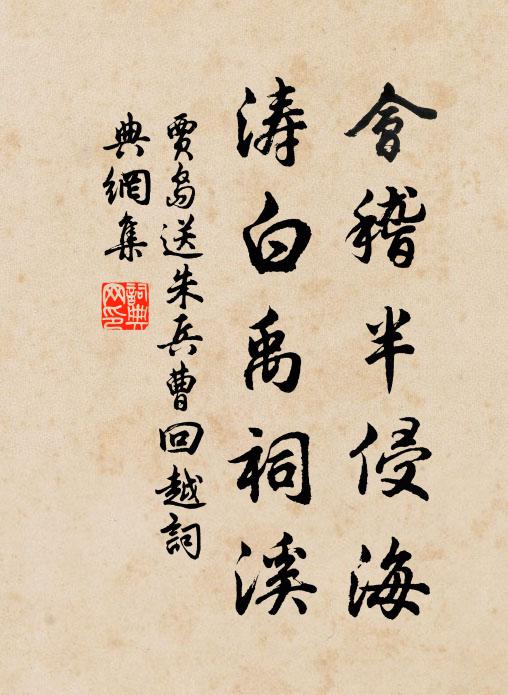 會稽半侵海
涛白禹祠溪
賈島送朱兵曹回越詞
典網集
詞典
网印